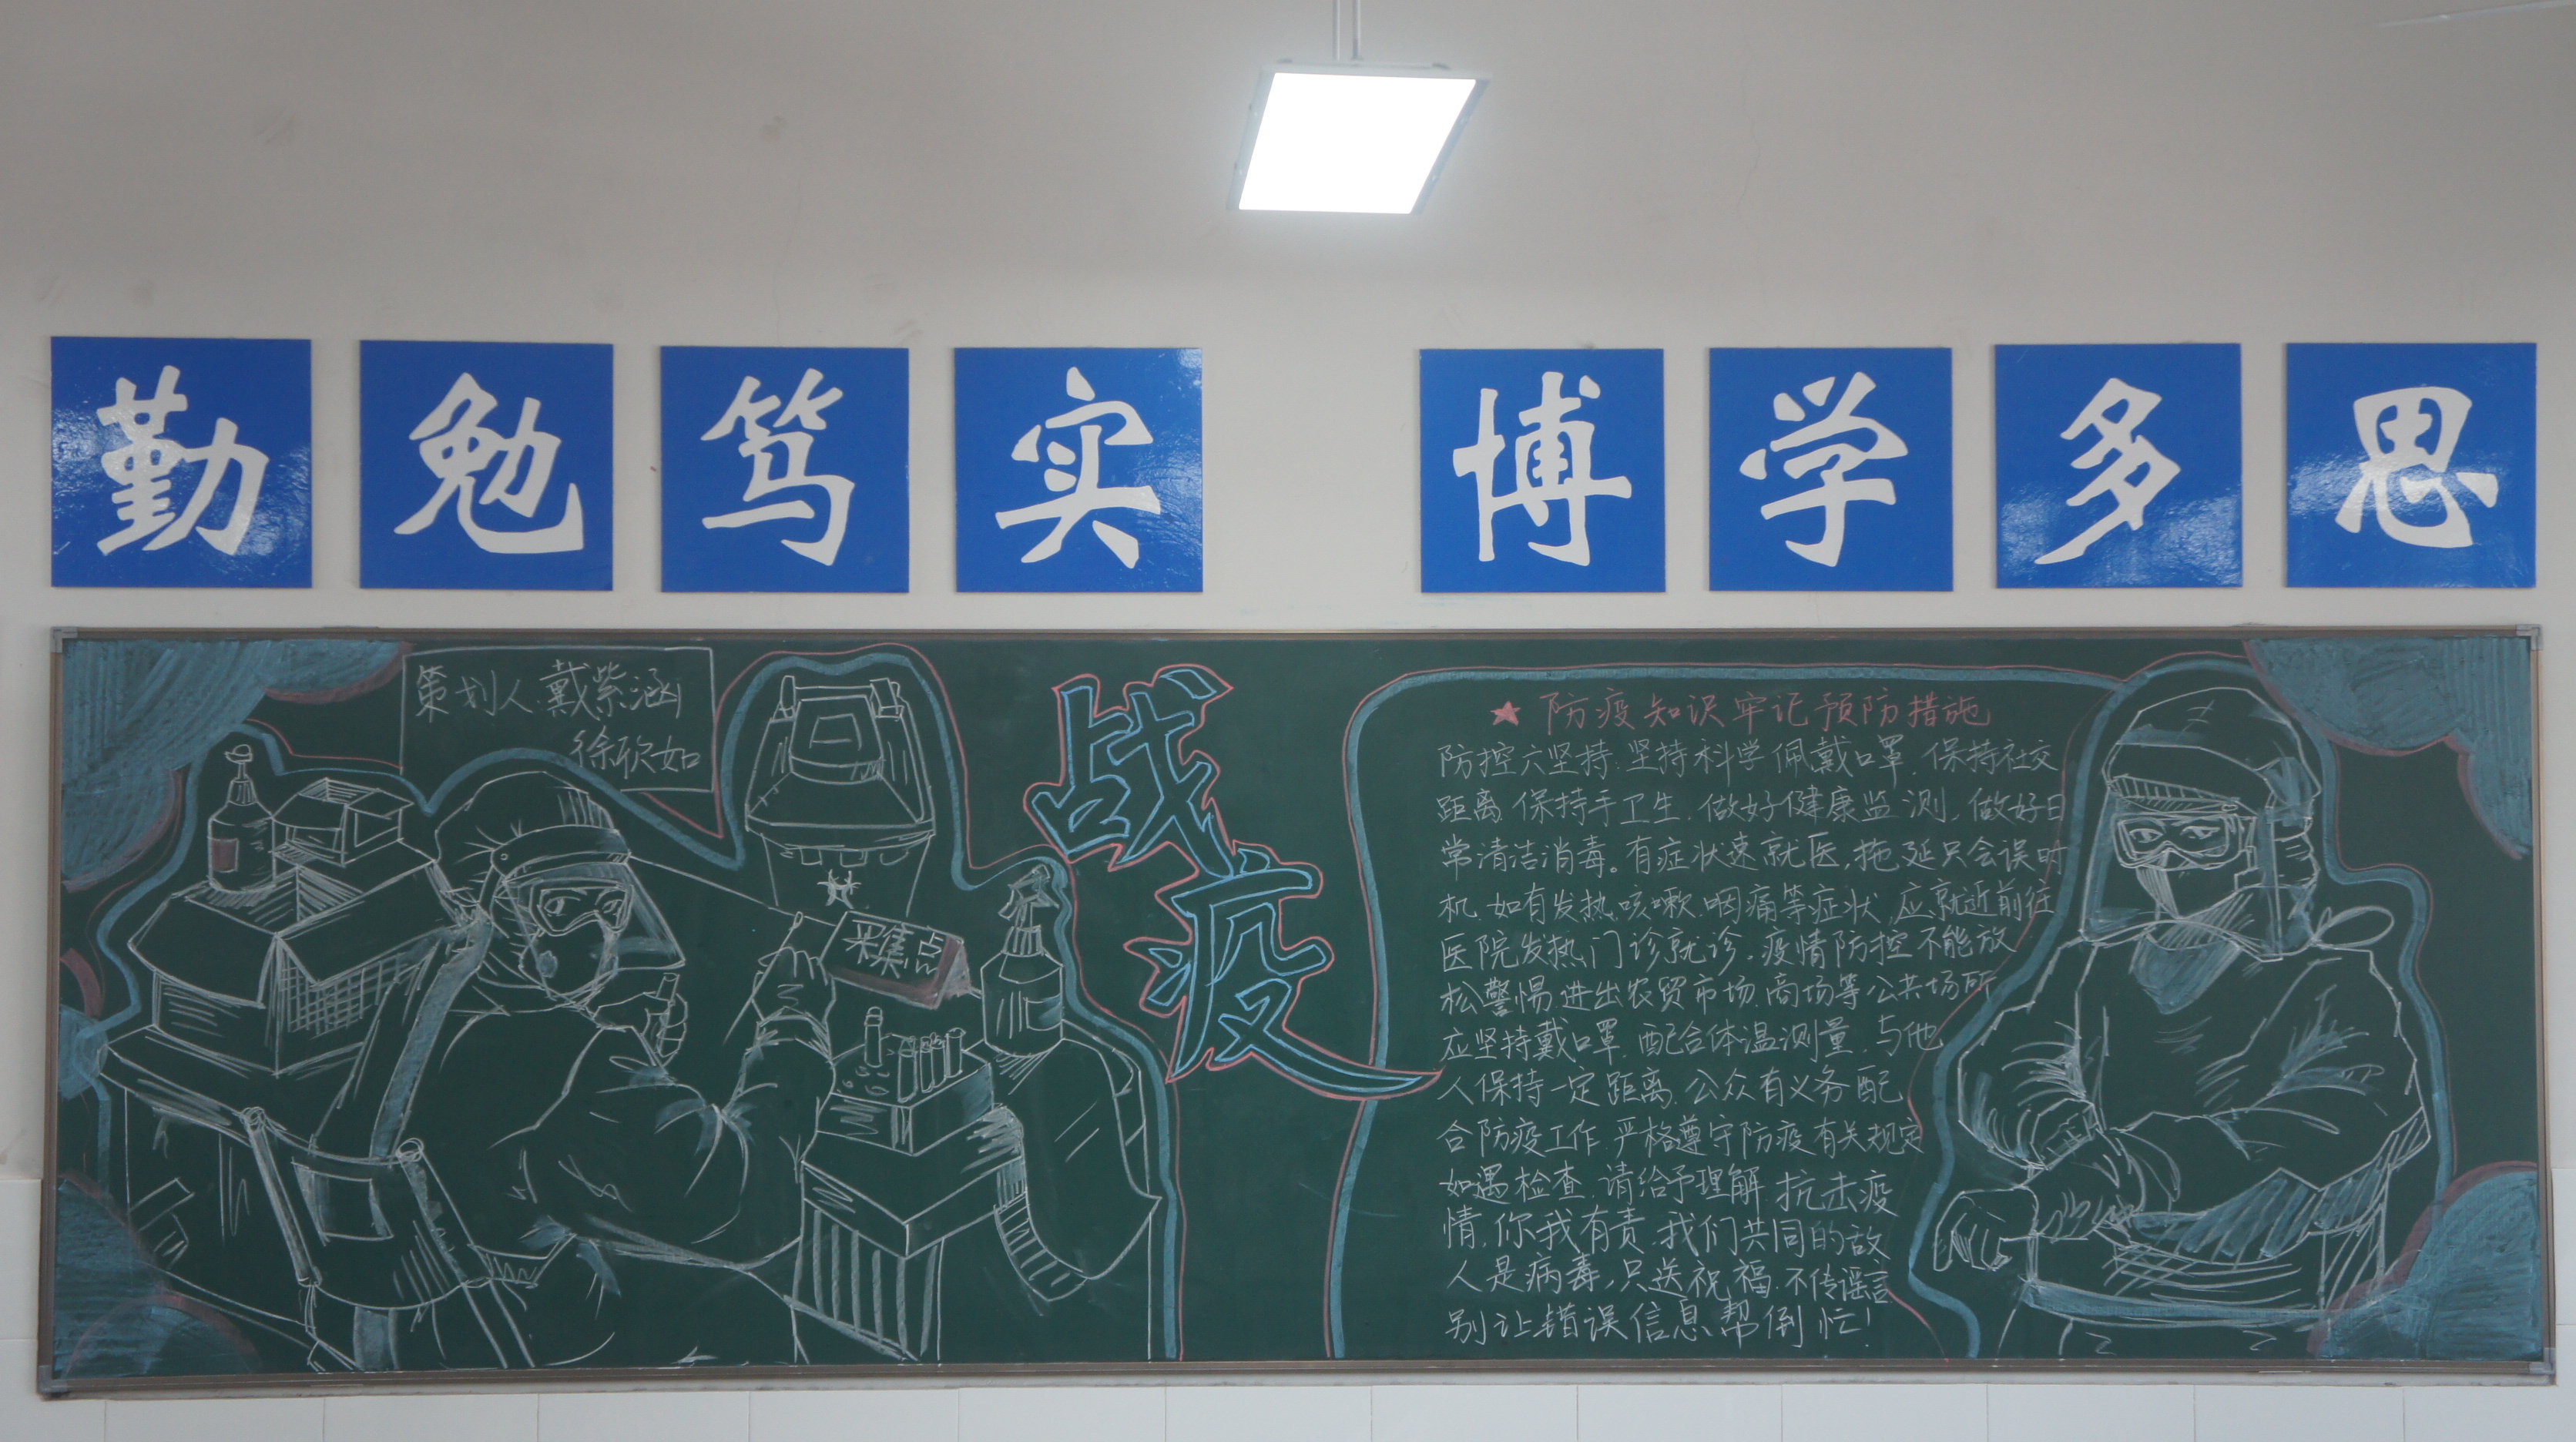 勤勉笃实 博学多思
策划人:戴紫涵
徐欣如
战疫
采集点
★防疫知识牢记预防措施
防控六坚持:坚持科学佩戴口罩、保持社交
距离、保持手卫生、做好健康监测、做好日
常清洁消毒。有症状速就医,拖延只会误时
机、如有发热、咳嗽、咽痛等症状,应就近前往
医院发热门诊就诊。疫情防控不能放
松警惕、进出农贸市场、商场等公共场所
应坚持戴口罩、配合体温测量、与他
人保持一定距离、公众有义务配
合防疫工作、严格遵守防疫有关规定
如遇检查、请给予理解、抗击疫
情,你我有责、我们共同的敌
人是病毒,只送祝福、不传谣言
别让错误信息帮倒忙!